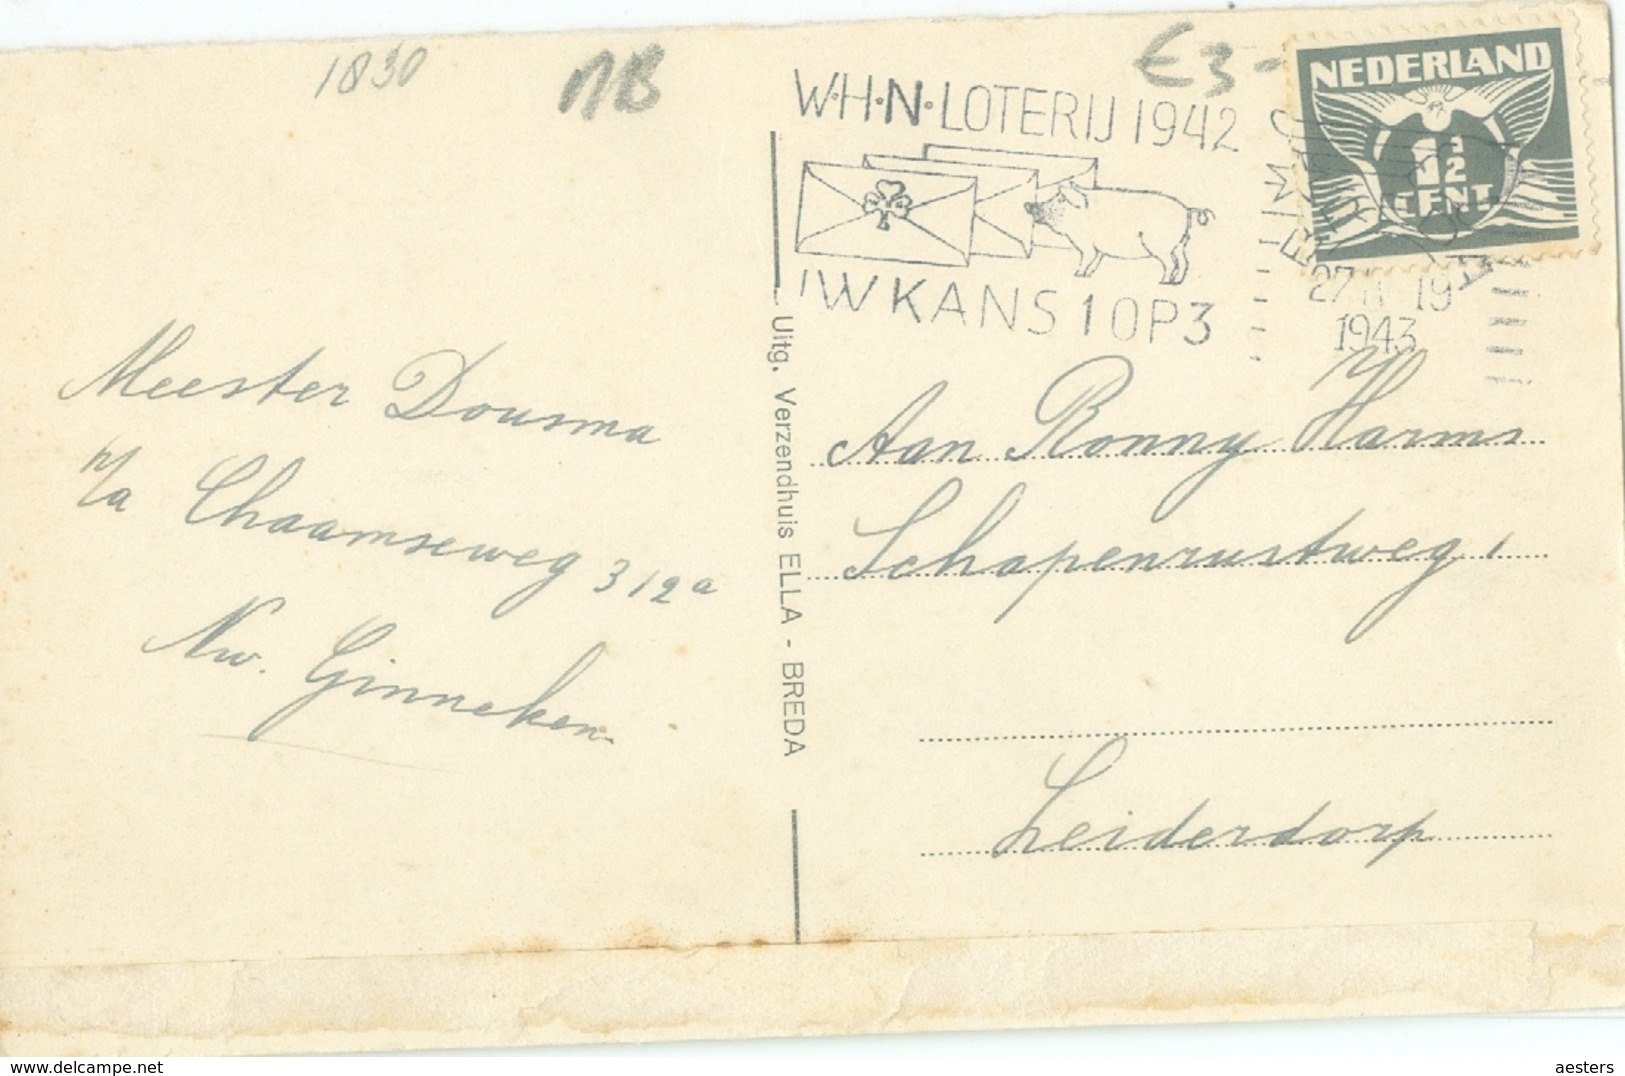 1830
NB
€3-
W·H·N·LOTERIJ 1942
UW KANS 1 OP 3
NEDERLAND
1½
CENT
27 19
1943
Meester Dousma
p/a Chaamseweg 312a
Nw. Ginneken
Uitg. Verzendhuis ELLA - BREDA
Aan Ronny Harms
Schapenrustweg 1
Leiderdorp
aesters